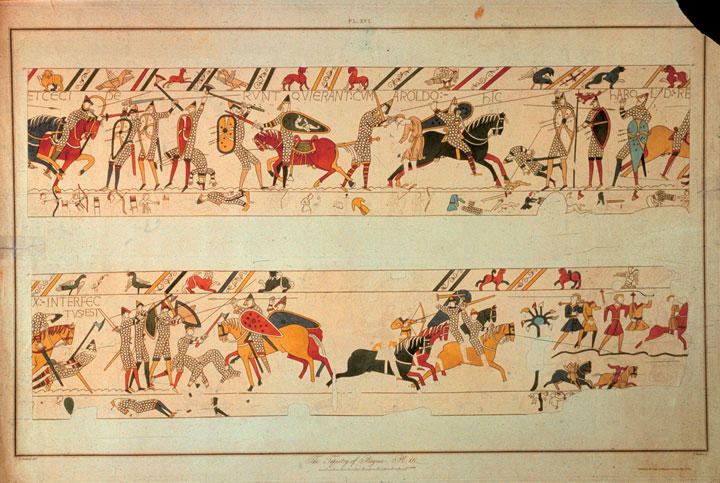 PL. XVI.
ET CECI DE RVNT QVI ERANT: CVM AROLDO:- hIC hARO LD: RE
X:- INTERFEC
TVS: EST
The Tapestry of Bayeux. Pl. 16.